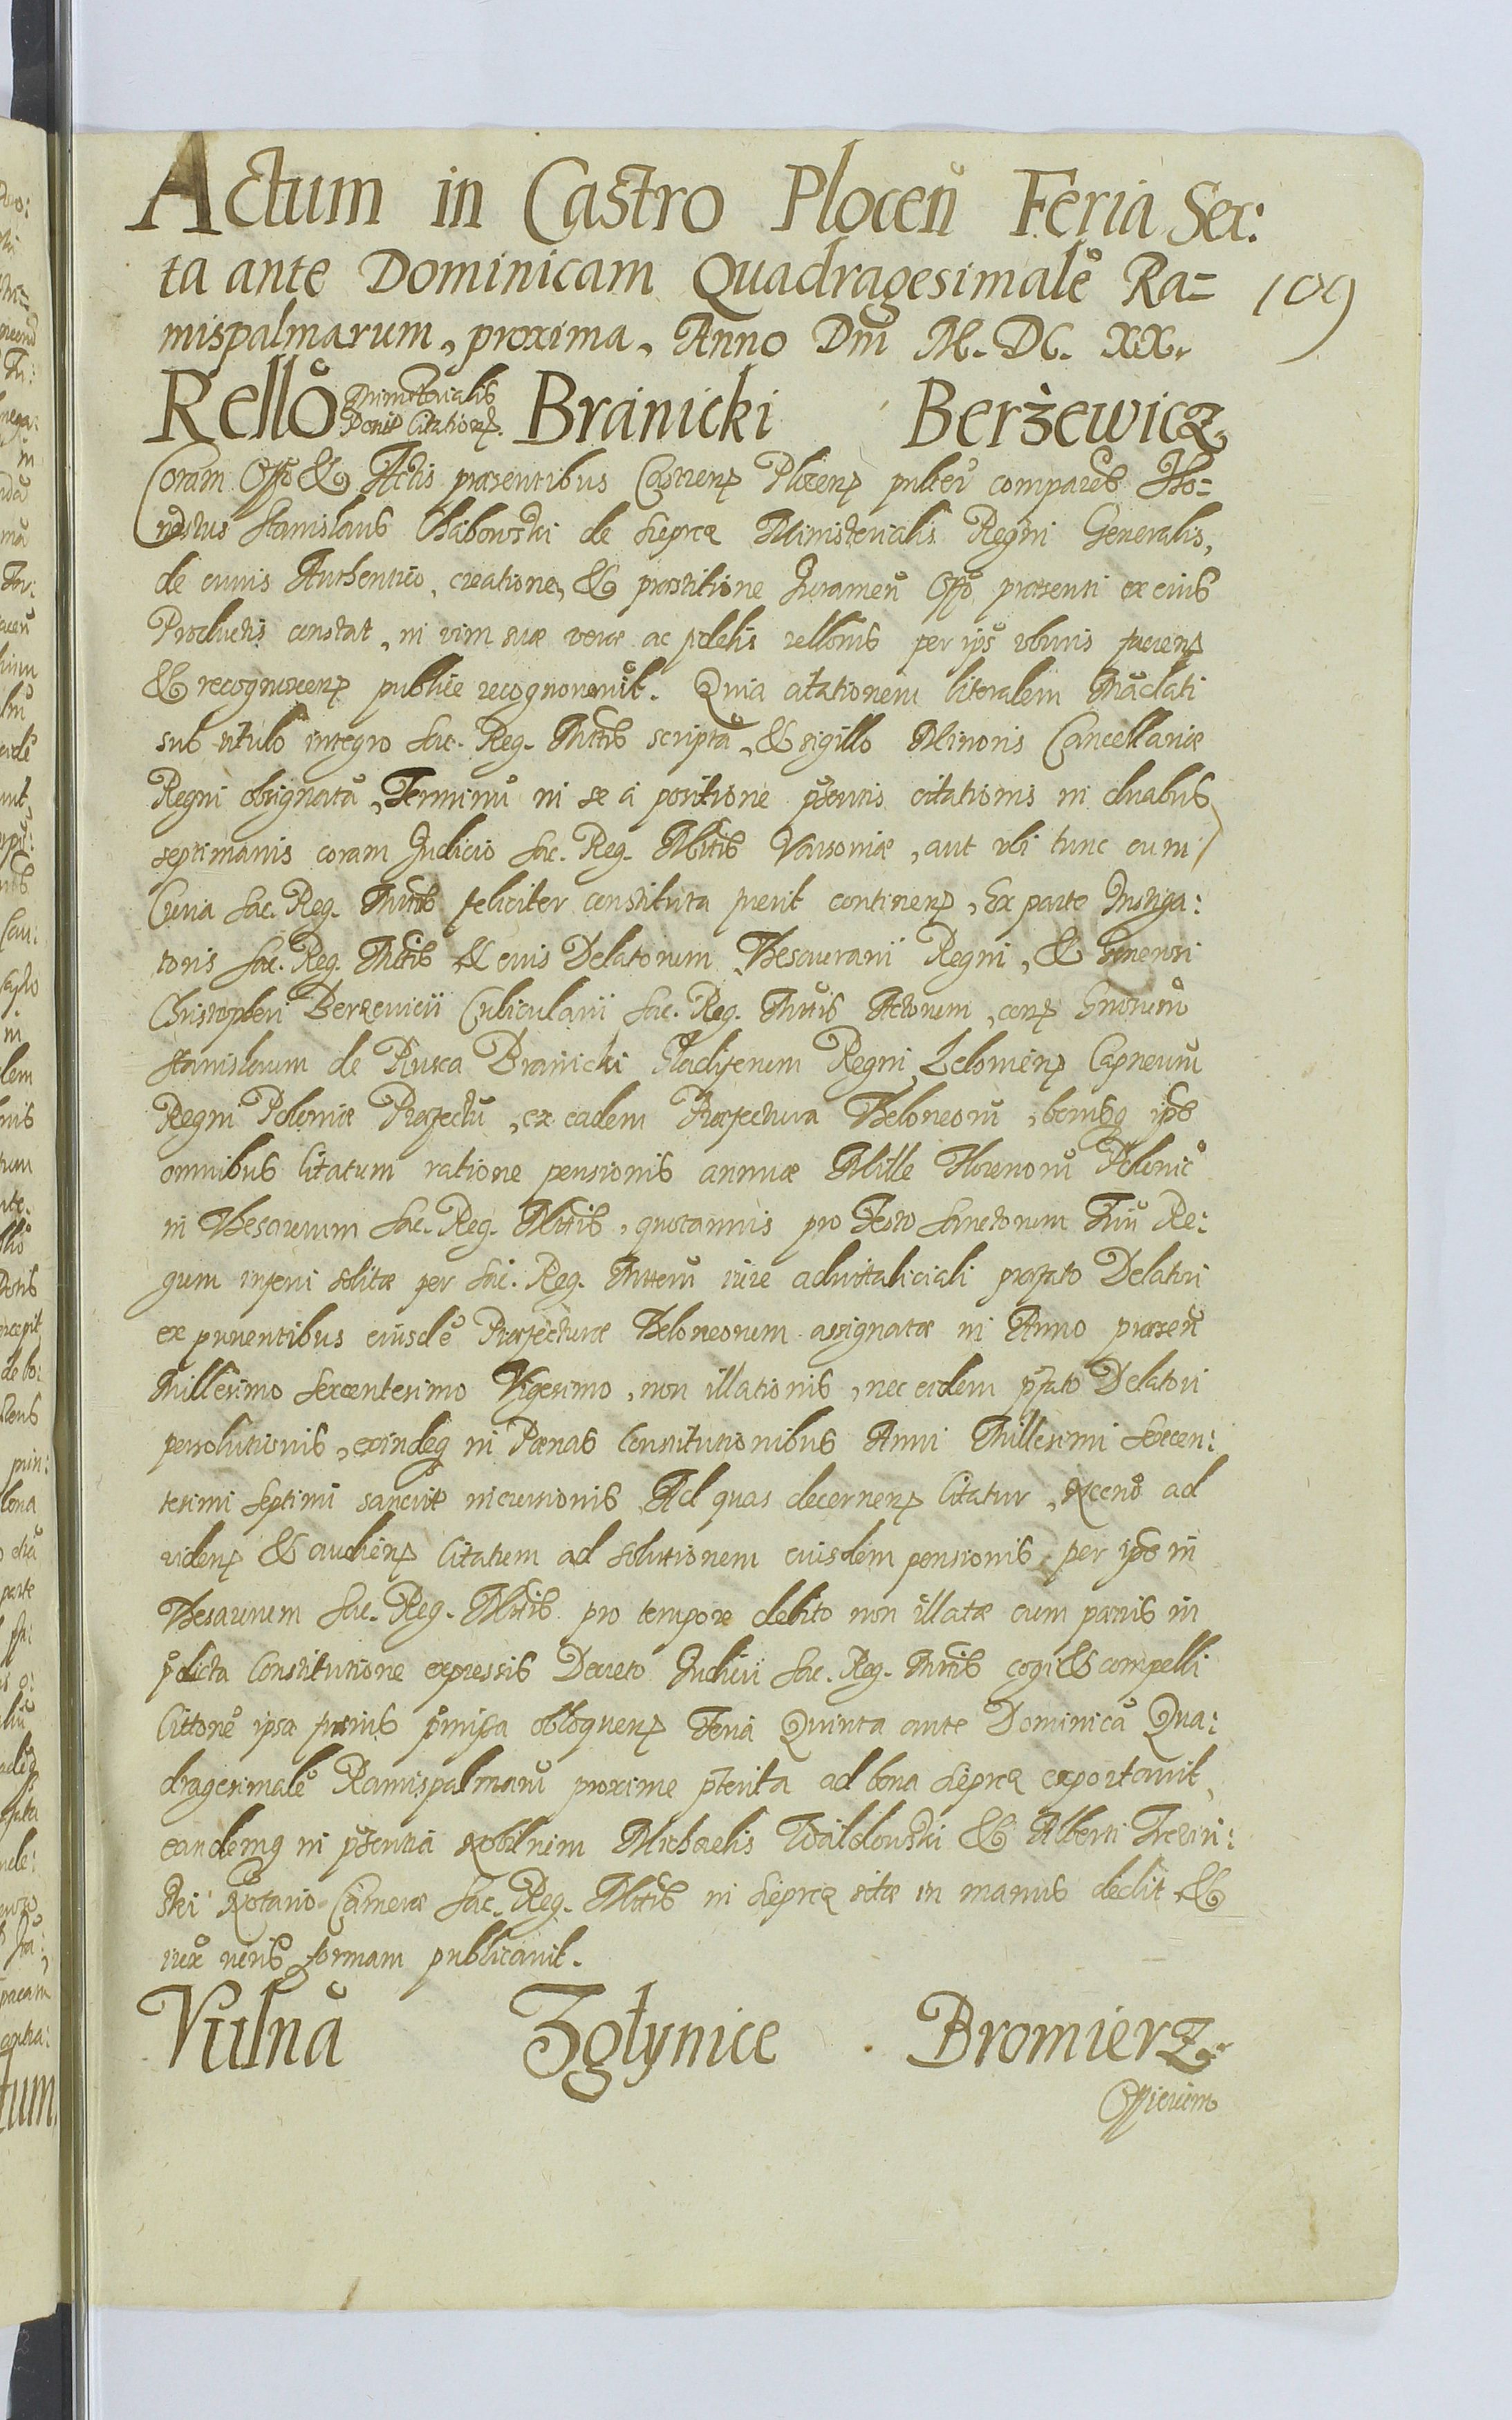 Actum in Castro Plocen̄ Feria Sex:
ta ante Dominicam Quadragesimalē Ra=
mispalmarum, proxima, Anno Dni M. DC. XX.
109
Rello Ministerialis
Posit Citationis Branicki Berżewicz
Coram Offo & Actis praesentibus Castren Plocen pulter comparens Ho=
nestus Stanislaus Chabowski de Sieprcz Ministerialis Regni Generalis,
de cuius Authentico, creatione, & praestitione Juramen Offo praesenti ex eius
Productis constat, in vim suae verae ac fidelis rellonis per ips
& recognoscen publice recognovit. Quia citationem literalem Mandati
sub titulo integro Sac. Reg. Mttis scriptā, & sigillo Minoris Cancellariae
Regni obsignatā, Terminū in se a positione pſentis citationis in duabus
septimanis coram Judicio Sac. Reg. Mttis Varsoviae, aut ubi tunc cum
Curia Sac. Reg. Mttis feliciter constituta fuerit continen, Ex parte Instiga:
toris Sac. Reg. Mttis & eius Delatorum Thesaurarii Regni, & Generosi
Christopheri Berzevicii Cubicularii Sac. Reg. Mttis Actorum, con Gnosum
Stanislaum de Rusca Branicki Gladiferum Regni, Capneum
Regni Poloniae Praefectū, ex eadem Praefectura Theloneorū, bonisq ips
omnibus Citatum ratione pensionis annuae Mille Florenorū Polonic
in Thesaurum Sac. Reg. Mttis, quotannis pro Festo Sanctorum Triū Re:
gum inferri solitae per Sac. Reg. Mttem iure advitaliciali praefato Delatori
ex proventibus eiusdē Praefecturae Theloneorum assignatae in Anno praesen
Millesimo Sexcentesimo Vigesimo, non illationis, nec eidem pfato Delatori
persolutionis, exindeq in Paenas Constitutionibus Anni Millesimi Sexcen:
tesimi Septimi sancitis incursionis Ad quas decernen Citatur, Necno ad
viden & audien Citatum ad solutionem eiusdem pensionis per ips in
Thesaurum Sac. Reg. Mttis pro tempore debito non illatae cum paenis in
pdicta Constitutione expressis Decreto Judicii Sac. Reg. Mttis cogi & compelli
Cittone ipsa fusius pmissa obloquen Feria Quinta ante Dominicā Qua:
dragesimalē Ramispalmarū proxime pterita ad bona Sieprcz exportavit,
eandemq in psentia Nobilium Michaelis Waidowski & Alberti
ski Notario Camerae Sac. Reg. Mttis in Sieprcz sitae in manus dedit &
iux veris formam publicavit.
Vulnā Zgłynice Bromierz